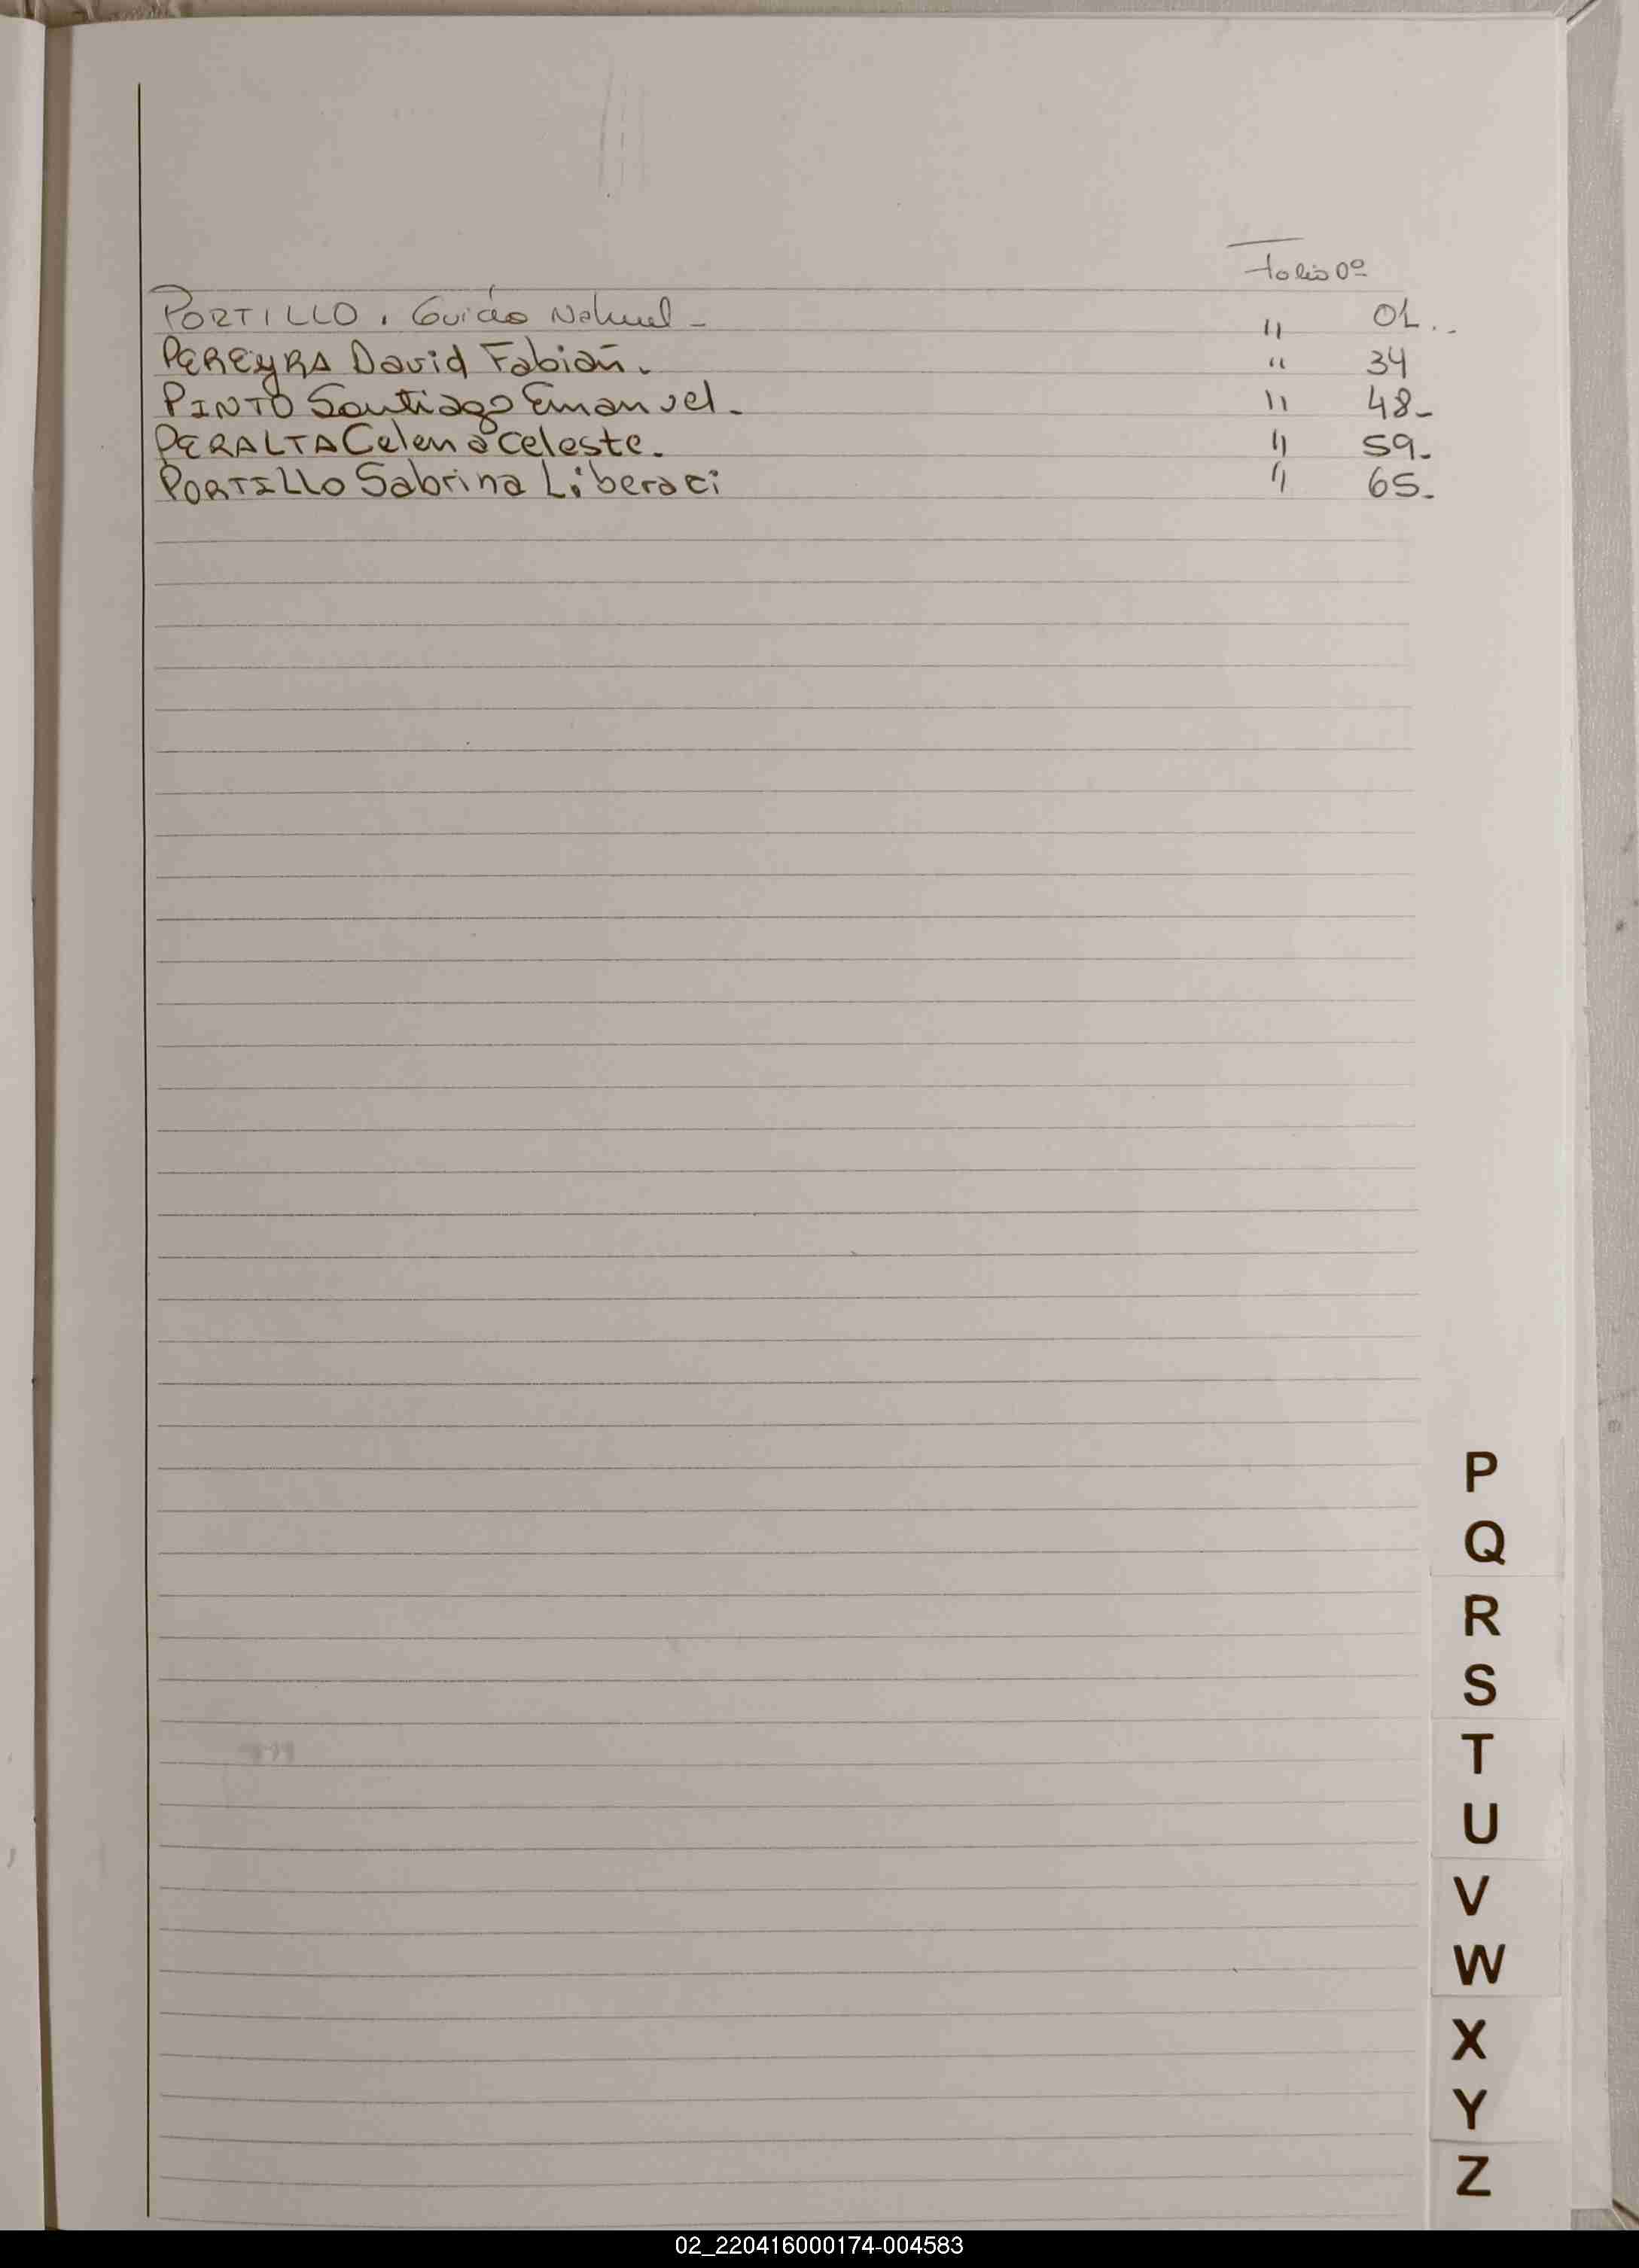 Folio Nº
PORTILLO. Guido Nahuel - " 01..
PEREYRA David Fabián. " 34
PINTO Santiago Emanuel. " 48-
PERALTA Celena celeste. " 59-
PORTILLO Sabrina Liberaci " 65-
P
Q
R
S
T
U
V
W
X
Y
Z
02_220416000174-004583